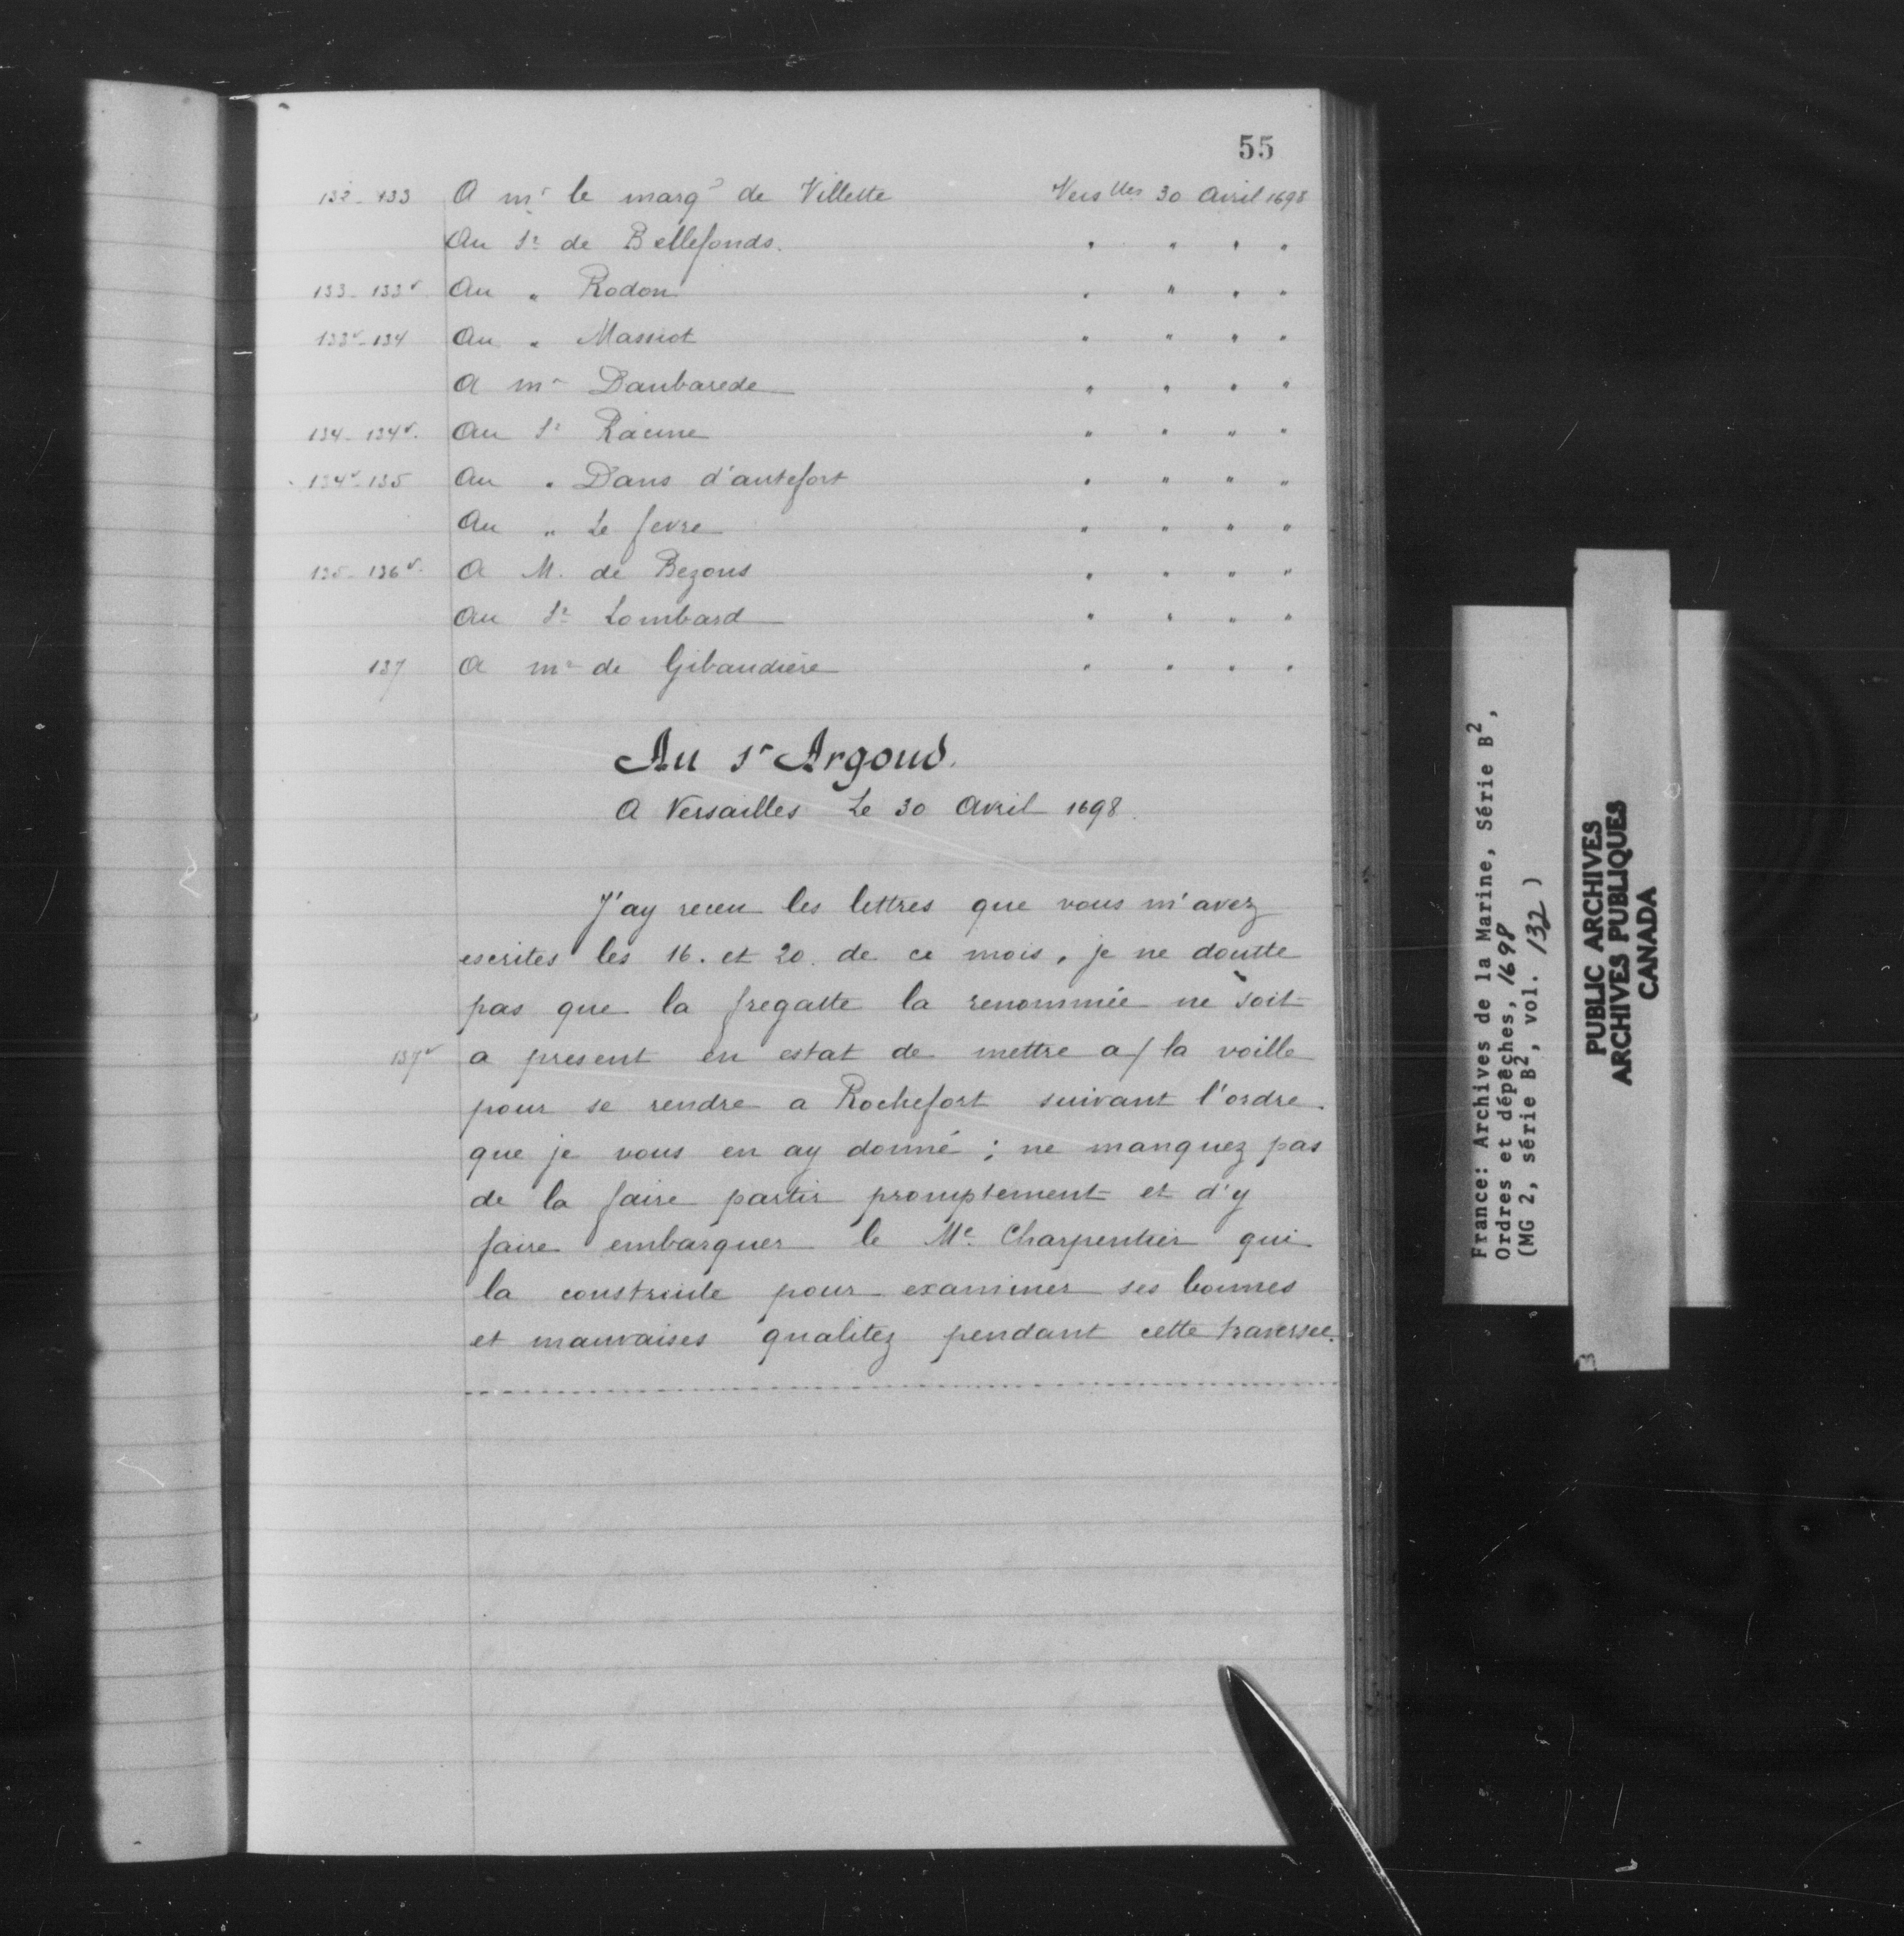 55
132-133 A mr le marqs de Villette Verslles 30 avril 1698
Au Sr de Bellefonds. " " " "
133-133v Au " Rodon " " " "
133v-134 Au " Massiot " " " "
A mr Daubarede " " " "
134-134v. Au Sr Racine " " " "
134v-135 Au " Dans d'autefort " " " "
Au " Le fevre " " " "
135-136v. A M. de Bezons " " " "
Au Sr Lombard " " " "
137 A mr de Gibaudière " " " "
Au Sr Argoud.
A Versailles Le 30 Avril 1698.
J'ay receu les lettres que vous m'avez
escrites les 16. et 20. de ce mois, je ne doutte
pas que la fregatte la renommée ne soit
137v a present en estat de mettre a/ la voille
pour se rendre a Rochefort suivant l'ordre
que je vous en ay donné ; ne manquez pas
de la faire partir promptement et d'y
faire embarquer le Me. Charpentier qui
la construite pour examiner ses bonnes
et mauvaises qualitez pendant cette traversee.
France: Archives de la Marine, Série B2,
Ordres et dépêches, 1698
(MG 2, série B2, vol. 132)
PUBLIC ARCHIVES
ARCHIVES PUBLIQUES
CANADA